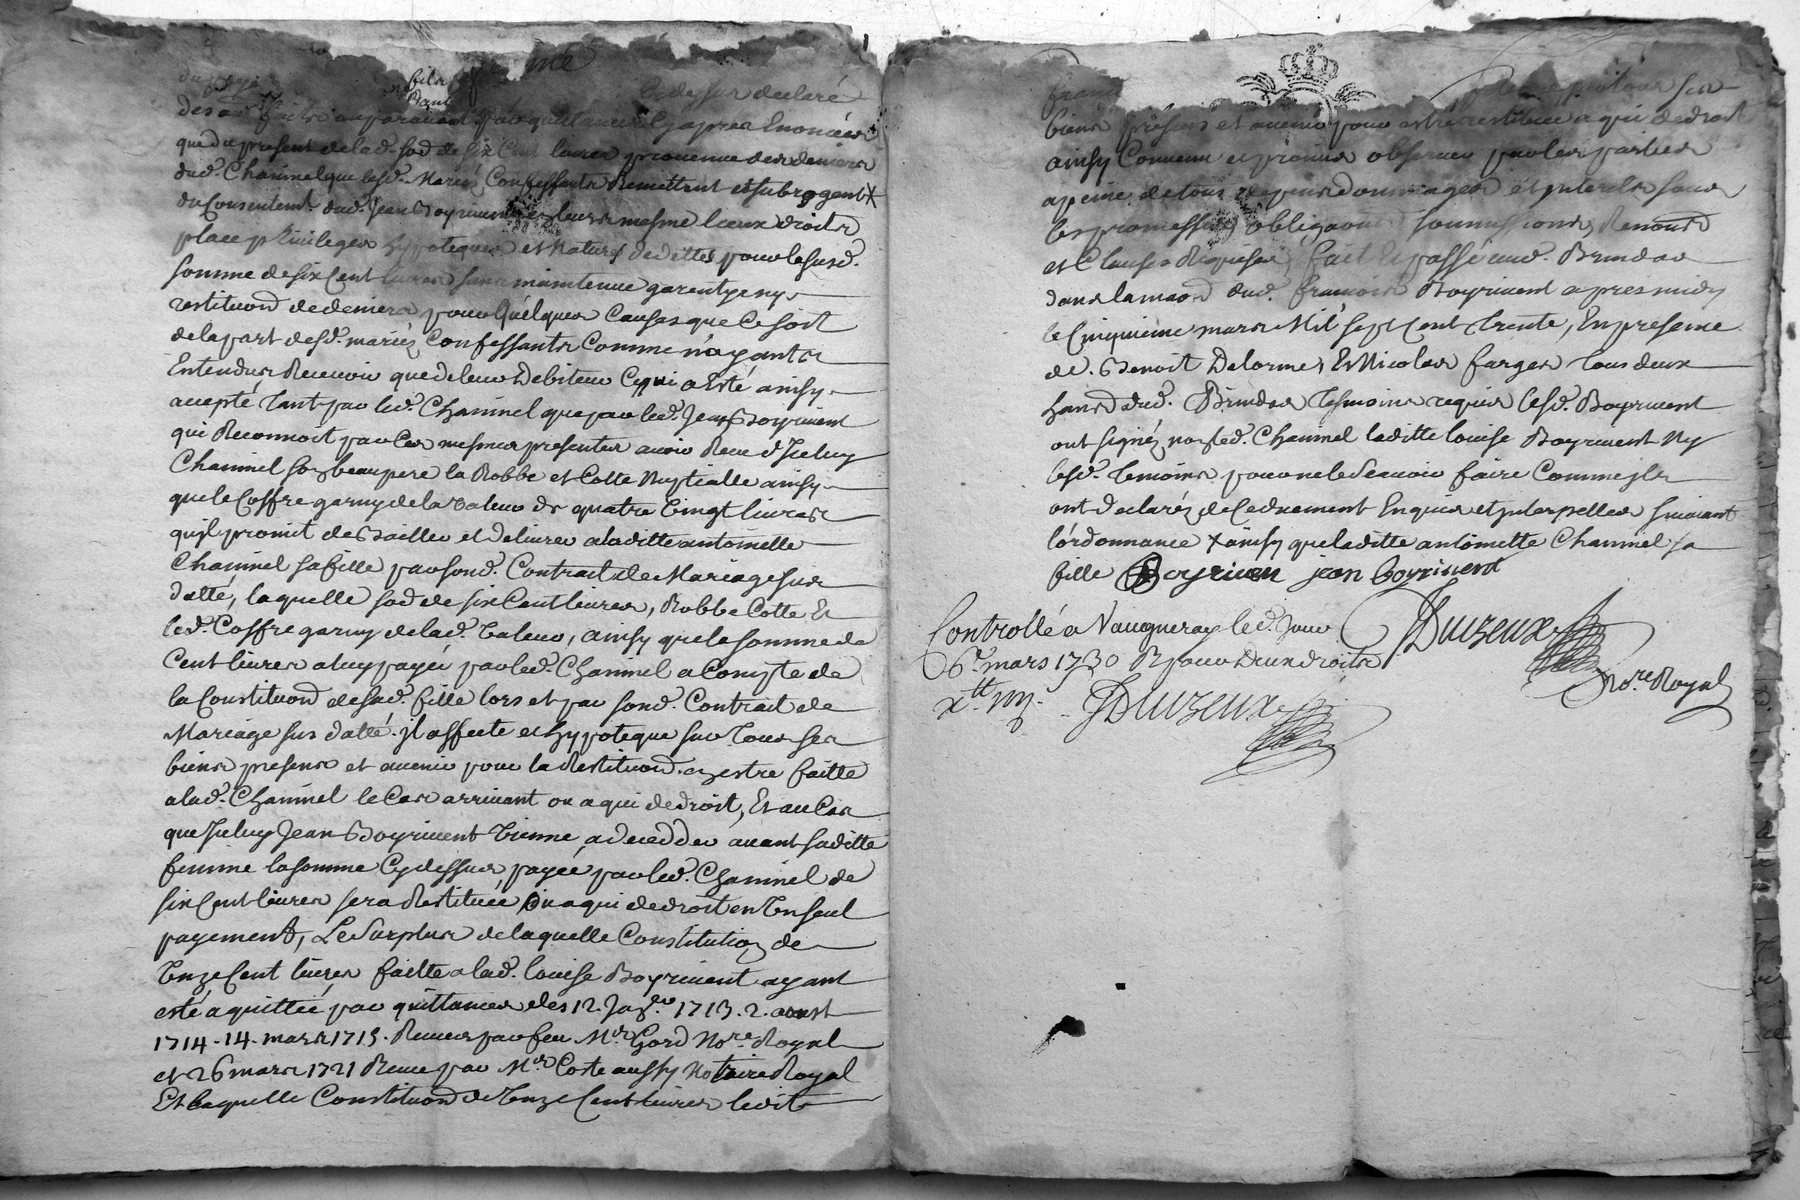 cy dessus declaré
que du present de lad. sod de six Cent livres provenue des deniers
dud. Chaninel que lesd. Mariez Confessants Remettent et subrogent X
du Consentemt. dud. Jean Boyrivent en leurs mesme lieux droits
place privileges hypoteques et Nature de dettes pour la susd.
somme de six Cent livres sans maintenue garentye ny
restituōn de deniers pour quelques Causes que Ce soit
de la part desd. mariéz Confessants Comme n'ayants
Entendus Recevoir que de leur Debiteur Ce qui a Esté ainsy
accepté tant par led. Chaninel que par led. Jean Boyrivent
qui Reconnoit par Ces mesmes presentes avoir Receu d'Iceluy
Chaninel son beaupere la Robbe et Cotte Nuptialle ainsy
que le Coffre garny de la valeur de quatre Vingt livres
qu'il promit de Bailler et delivrer a laditte antoinette
Chaninel sa fille par sond. Contrait de Mariage sus
datté, laquelle sod de six Cent livres, Robbe Cotte Et
led. Coffre garny de lad. valeur, ainsy que la somme de
Cent livres a luy payée par led. Chaninel a Compte de
la Constituōn de sad. fille lors et par sond. Contrait de
Mariage sus datté. jl affecte et hypoteque sur Tous ses
biens presens et avenir pour la Restituōn. en estre faitte
a lad. Chaninel le Cas arrivant ou a qui de droit, Et au Cas
que Iceluy Jean Boyrivent Vienne a decedder avant saditte
femme la somme Cy dessus payée par led. Chaninel de
six Cent livres sera Restituée ou a qui de droit en Un seul
payement, Le Surplus de laquelle Constitution de
Unze Cent livres faitte a lad. louise Boyrivent ayant
esté aquittée par quittances des 12. Janer. 1713. 2. aoust
1714 - 14. mars 1715. Receues par feu Mre Gord Nore. Royal
et 26 mars 1721 Receue par Mre Coste aussy Notaire Royal
Et laquelle Constituōn de Unze Cent livres ledit
biens presens et avenir pour estre restituée a qui de droit
ainsy Convenu et promis observer par les parties
a peine de tous depens dommages et interets sous
les promesses, obligaōns soumissions, Renonsd
et Clauses Requises, fait et passé aud. Brindas
dans la maōn dud. françois Boyrivent apres midy
le Cinquiéme mars Mil sept Cent Trente, En presence
de Benoit Delorme, Et Nicolas farges Tous deux
hans dud. Brindas Tesmoins requis lesd. Boyrivent
ont signéz non led. Chaninel laditte louise Boyrivent Ny
lesd. Temoins pour ne le Scavoir faire Comme jls
ont declaréz de Ce duement Enquis et jnterpellés suivant
l'ordonnance X ainsy que laditte antoinette Chaninel sa
fille Boyriven jean boyrivent
Controllé a Vaugneray led. Jour
6e. mars 1730 R pour Deux droits
Duizeux
Nore. Royal
Duizeux